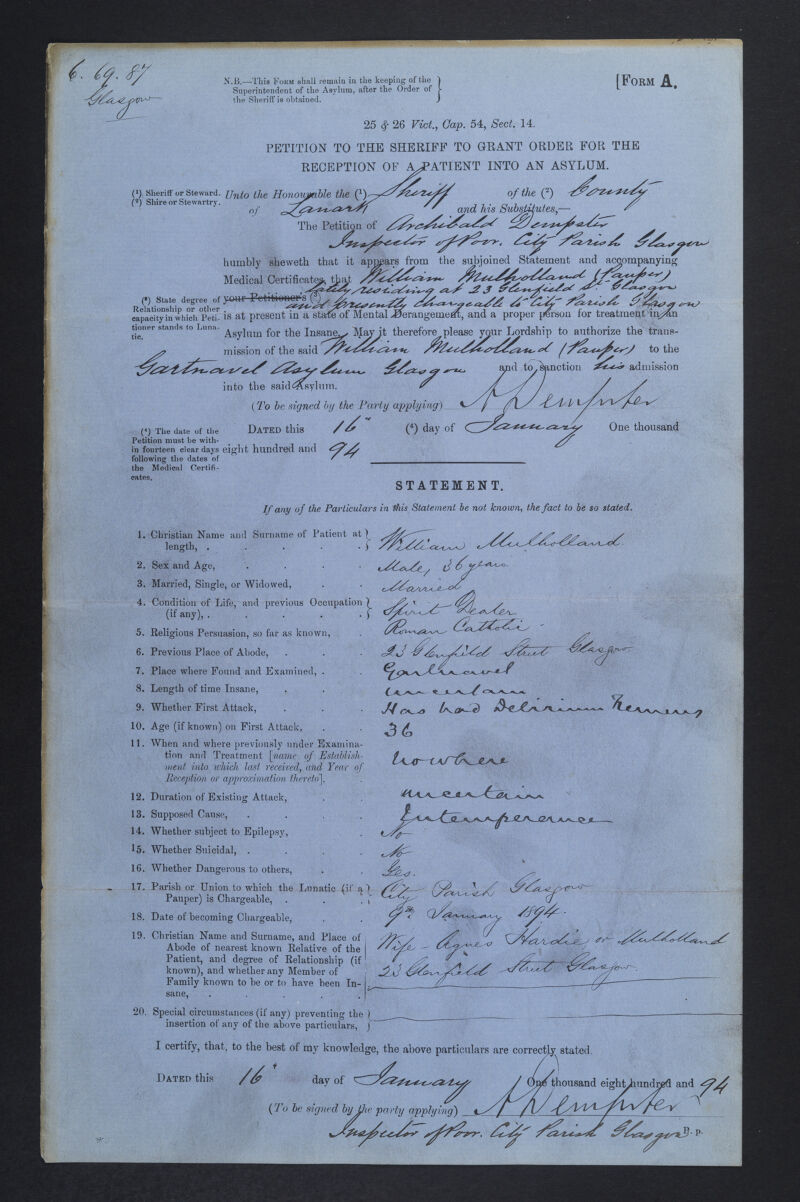 6. 69. 87
Glasgow
N.B.—This Form shall remain in the keeping of the
Superintendent of the Asylum, after the Order of
the Sheriff is obtained.
[Form A.
25 & 26 Vict., Cap. 54, Sect. 14.
PETITION TO THE SHERIFF TO GRANT ORDER FOR THE
RECEPTION OF A PATIENT INTO AN ASYLUM.
(¹) Sheriff or Steward.
(²) Shire or Stewartry.
Unto the Honourable the (¹) Sheriff of the (²) County
of Lanark and his Substitutes,—
The Petition of Archibald Dempster
Inspector of Poor. City Parish Glasgow
humbly sheweth that it appears from the subjoined Statement and accompanying
Medical Certificates, that William Mulholland (Pauper)
lately residing at 23 Glenfield St Glasgow
your Petitioner's (³)
and presently chargeable to City Parish Glasgow
(³) State degree of
Relationship or other
capacity in which Peti-
tioner stands to Luna-
tic.
is at present in a state of Mental Derangement, and a proper person for treatment in an
Asylum for the Insane. May it therefore please your Lordship to authorize the trans-
mission of the said William Mulholland (Pauper) to the
Gartnavel Asylum Glasgow and to sanction his admission
into the said Asylum.
(To be signed by the Party applying) A Dempster
(⁴) The date of the
Petition must be with-
in fourteen clear days
following the dates of
the Medical Certifi-
cates.
Dated this 16" (⁴) day of January One thousand
eight hundred and 94
STATEMENT.
If any of the Particulars in this Statement be not known, the fact to be so stated.
1. Christian Name and Surname of Patient at
length, . William Mulholland
2. Sex and Age, Male, 36 years
3. Married, Single, or Widowed, Married
4. Condition of Life, and previous Occupation
(if any), . Spirit Dealer
5. Religious Persuasion, so far as known, Roman Catholic
6. Previous Place of Abode, 23 Glenfield Street Glasgow
7. Place where Found and Examined, . Gartnavel
8. Length of time Insane, uncertain
9. Whether First Attack, Has had Delirium Tremens
10. Age (if known) on First Attack, 36
11. When and where previously under Examina-
tion and Treatment [name of Establish-
ment into which last received, and Year of
Reception or approximation thereto]. nowhere
12. Duration of Existing Attack, uncertain
13. Supposed Cause, Intemperance
14. Whether subject to Epilepsy, No
15. Whether Suicidal, . No
16. Whether Dangerous to others, Yes.
17. Parish or Union to which the Lunatic (if a
Pauper) is Chargeable, . City Parish Glasgow
18. Date of becoming Chargeable, 9th January 1894.
19. Christian Name and Surname, and Place of
Abode of nearest known Relative of the
Patient, and degree of Relationship (if
known), and whether any Member of
Family known to be or to have been In-
sane, Wife - Agnes Hardie or Mulholland
23 Glenfield Street Glasgow.
20. Special circumstances (if any) preventing the
insertion of any of the above particulars,
I certify, that, to the best of my knowledge, the above particulars are correctly stated.
Dated this 16" day of January One thousand eight hundred and 94
(To be signed by the party applying) A Dempster
Inspector of Poor. City Parish Glasgow B. p.